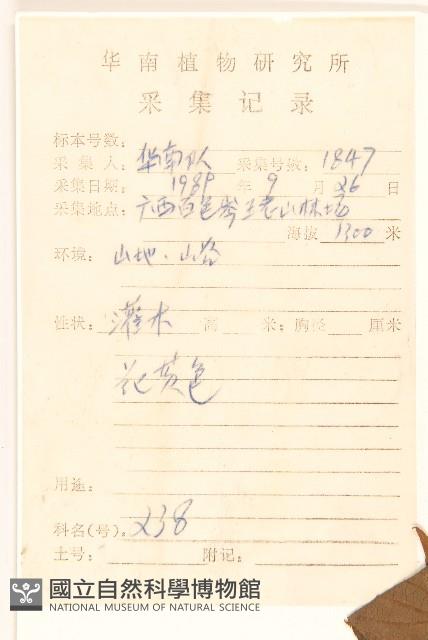 华南植物研究所
采集记录
标本号数:
采集人: 华南队 采集号数: 1847
采集日期: 1989 年 9 月 26 日
采集地点: 广西百色岑王老山林场
海拔 1300 米
环境: 山地、山路
性状: 灌木 高 米; 胸径 厘米
花黄色
用途:
科名(号). 238
土号: 附记:
國立自然科學博物館
NATIONAL MUSEUM OF NATURAL SCIENCE